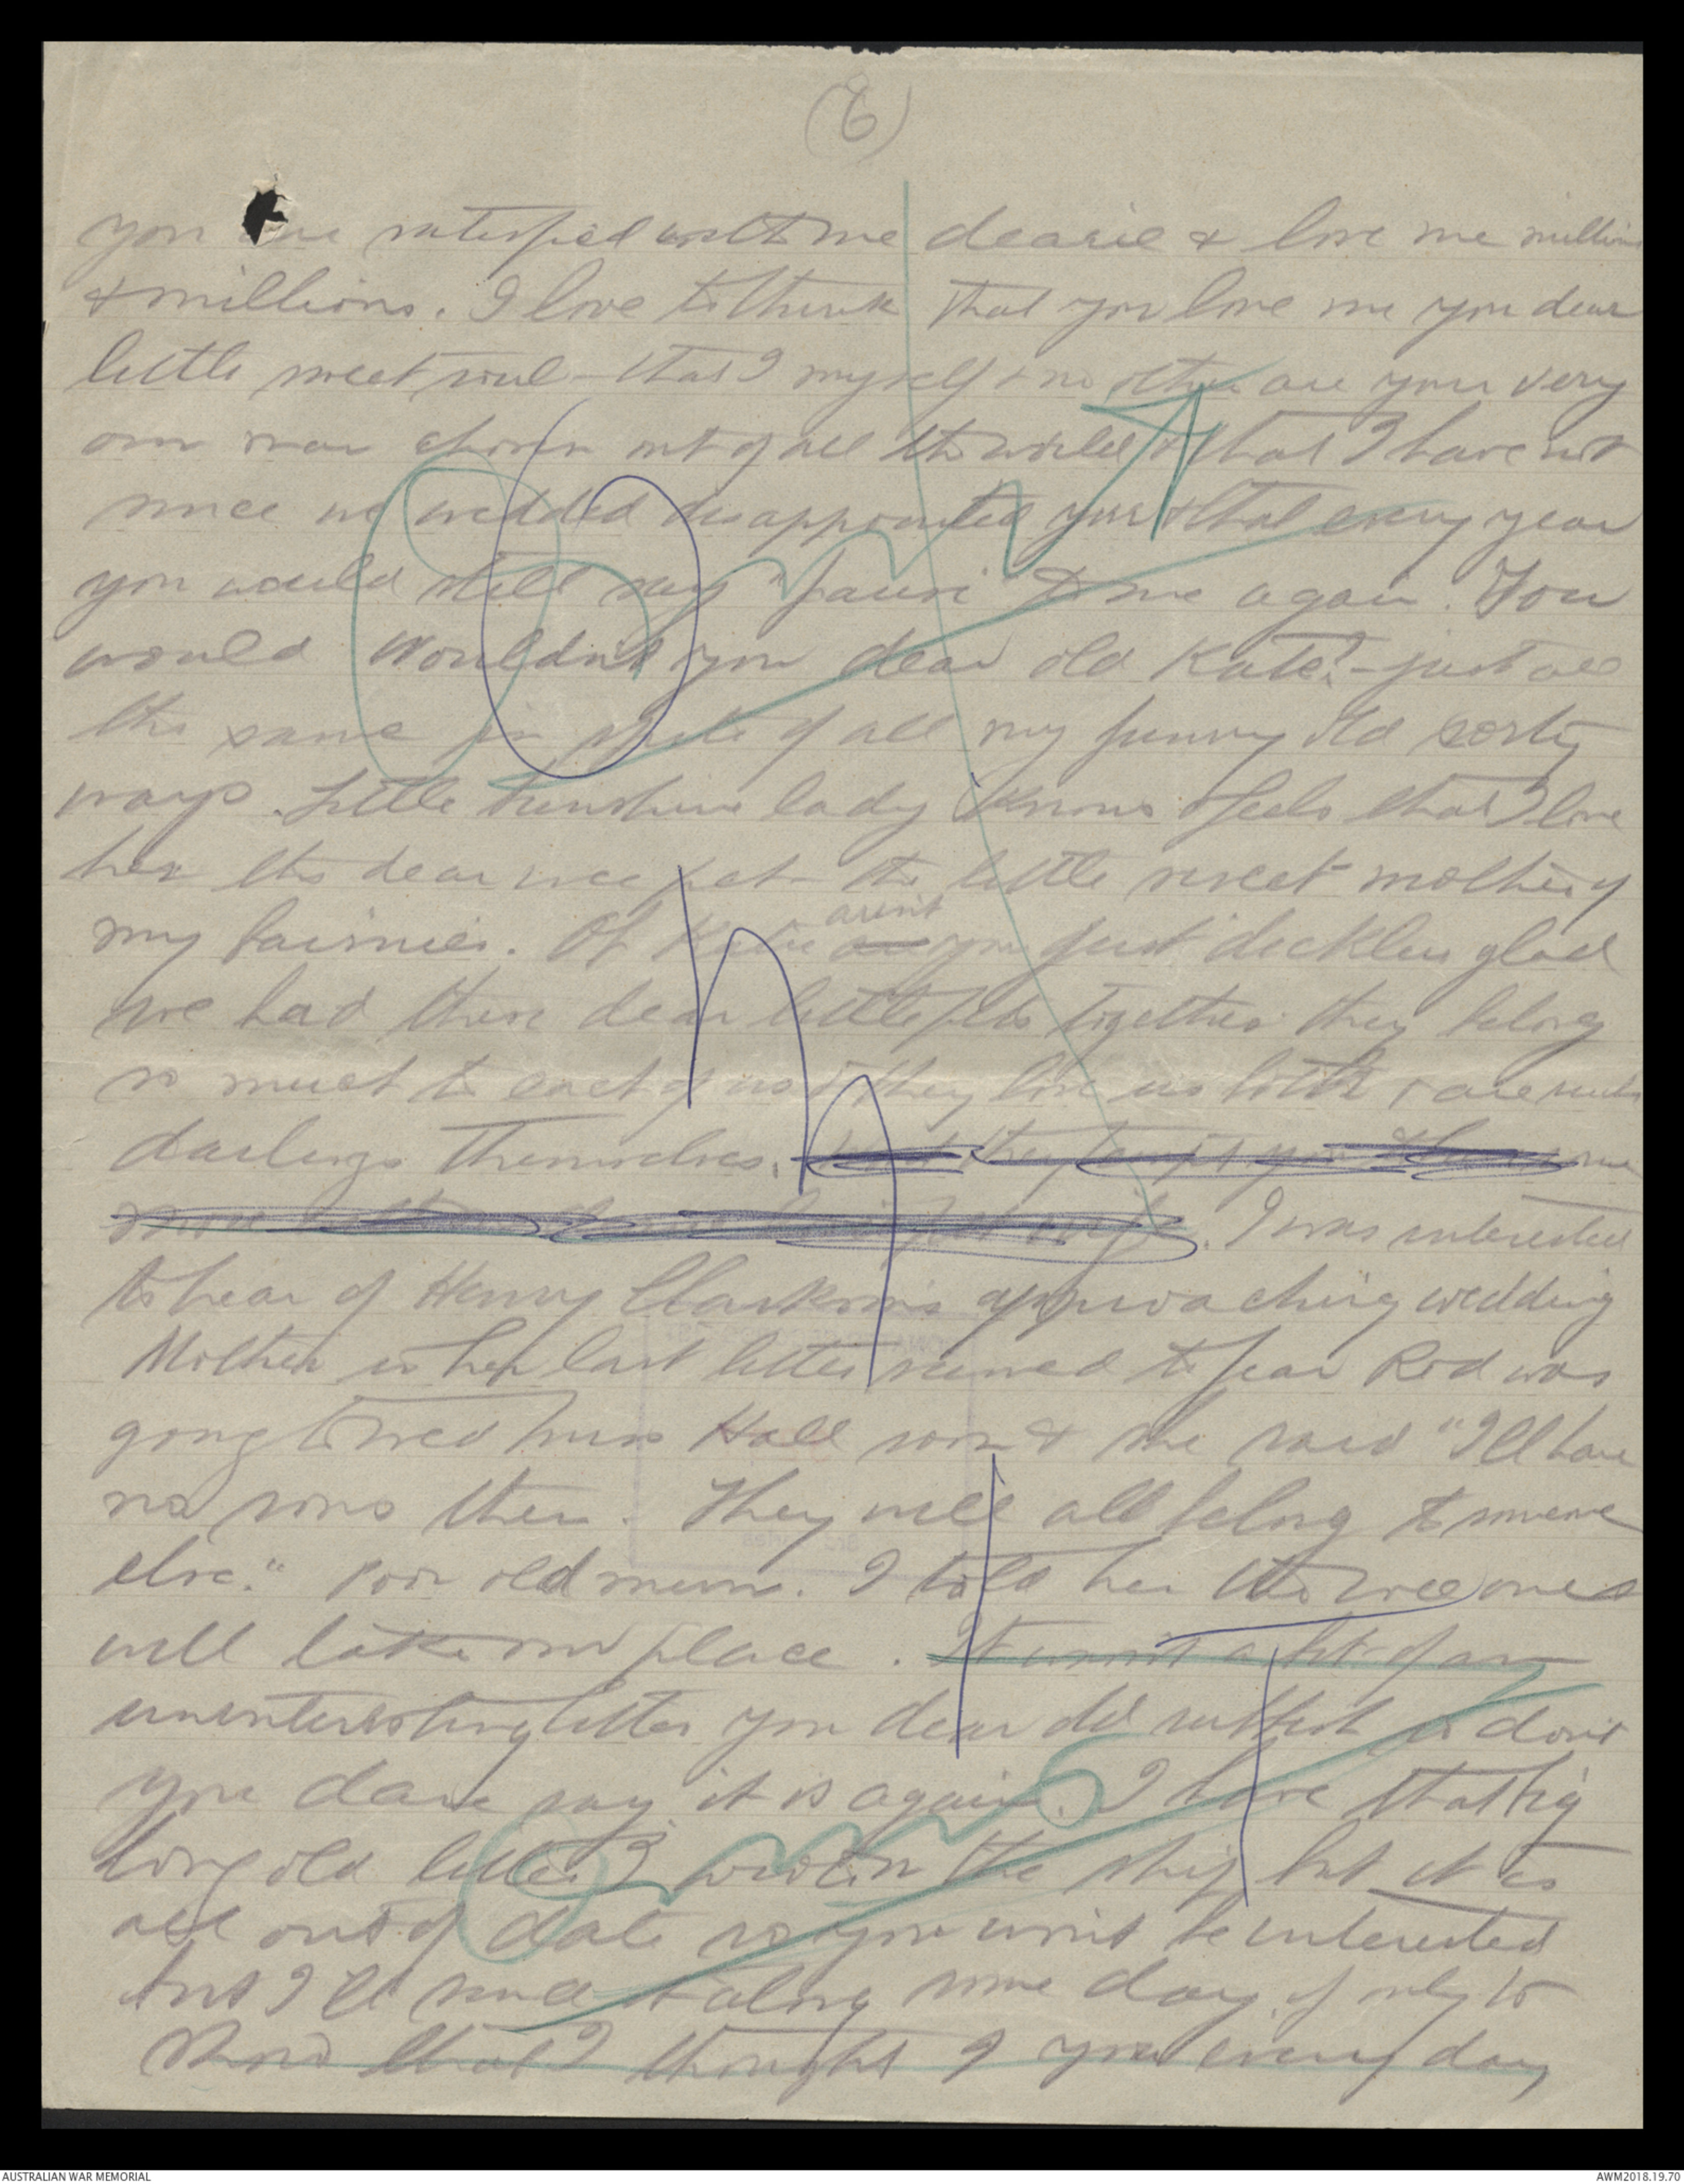 (6)
you are satisfied with me dearie & love me millions
& millions. I love to think that you love me you dear
little sweet soul - that I myself & no other are your very
own man chosen out of all the world & that I have not
since we wedded disappointed you & that every year
you would still say "fauri" to me again. You
would wouldn't you dear old Kate? - just all
the same in spite of all my funny old
ways. Little sunshine lady knows & feels that I love
her the dear wee pet - the little sweet mother of
my bairnies. Oh Katie aren't you just glad
we had these dear little pets together they belong
so much to each of us & they love us both & are such
darlings themselves.
I was interested
to hear of Henry Clarkson's approaching wedding
Mother in her last letter seemed to fear Rod was
going to wed Miss Hall soon & she said "I'll have
no sons then. They will all belong to someone
else." Poor old mum. I told her the wee ones
will take our place. It wasn't a bit of an
uninteresting letter you dear old & don't
you dare say it is again. I have that big
long old letter I wrote on the ship but it is
all out of date so you won't be interested
but I'll send it along some day if only to
show that I thought of you every day
AUSTRALIAN WAR MEMORIAL
AWM2018.19.70